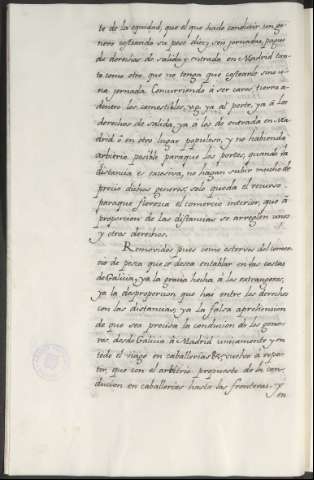 te de la equidad, que el que ha de conducir un ge-
nero costeando su peso diez, ó seis jornadas, pague
de derechos de salida y entrada en Madrid tan-
to como otro, que no tenga que costearlo sino u-
na jornada. Concurriendo á ser caros tierra a-
dentro los comestibles, ya, ya al porte, ya á los
derechos de salida, ya á los de entrada en Ma-
drid ó en otro lugar populoso, y no habiendo
arbitrio posible para que los portes, quando la
distancia es excesiva, no hagan subir mucho de
precio dichos generos, solo queda el recurso
para que florezca el comercio interior, que á
proporcion de las distancias se arreglen unos
y otros derechos.
Removidos pues como estorvos del comer-
cio de pesca que se desea entablar en las costas
de Galicia, ya la gracia hecha á los extrangeros,
ya la desproporcion que hay entre los derechos
con las distancias, ya la falsa aprehension
de que sea precisa la conducion de los gene-
ros, desde Galicia á Madrid unicamente y en
todo el viage en caballerias, vuelvo á repe-
tir, que con el arbitrio propuesto de la con-
ducion en caballerias hasta las fronteras, y
en